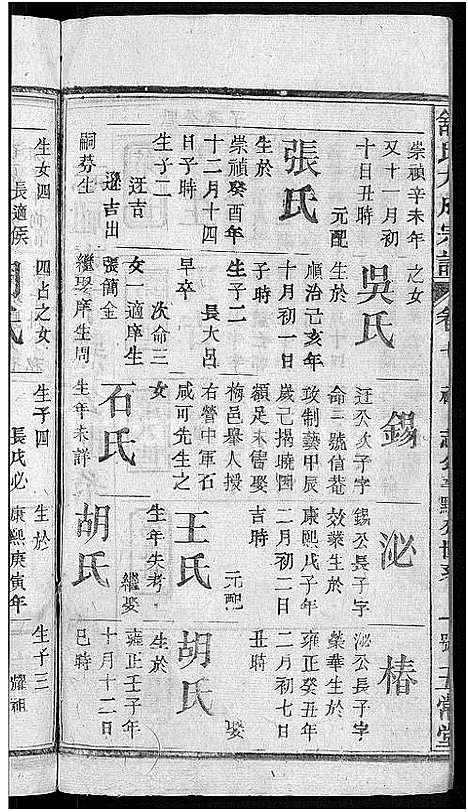 舒氏大成宗譜
五常堂
崇禎辛未年
又十一月初
十日丑時
元配
張氏
生於
崇禎癸酉年
十二月十四
日子時
生子二
迓吉
遜吉出
嗣芬生
生女四
長適侯
之女
吳氏
生於
順治己亥年
十月初一日
生子二
長大呂
早卒
次命三
女一適
張簡金
繼娶摩生周
四占之女
錫
迓公次子字
命三號信菴
攻制藝甲辰
歲己揭曉圈
額足未啻娶
梅邑舉人授
右營中軍石
咸可先生之
女
石氏
生年未詳
生子四
長戌必
泌
錫公長子字
效業生於
康熙戊子年
二月初二日
吉時
元配
王氏
生年失考
繼娶
胡氏
生於
康熙庚寅年
椿
泌公長子字
榮華生於
雍正癸丑年
二月初七日
丑時
娶
胡氏
生於
雍正壬子年
十月十二日
巳時
生子三
耀祖